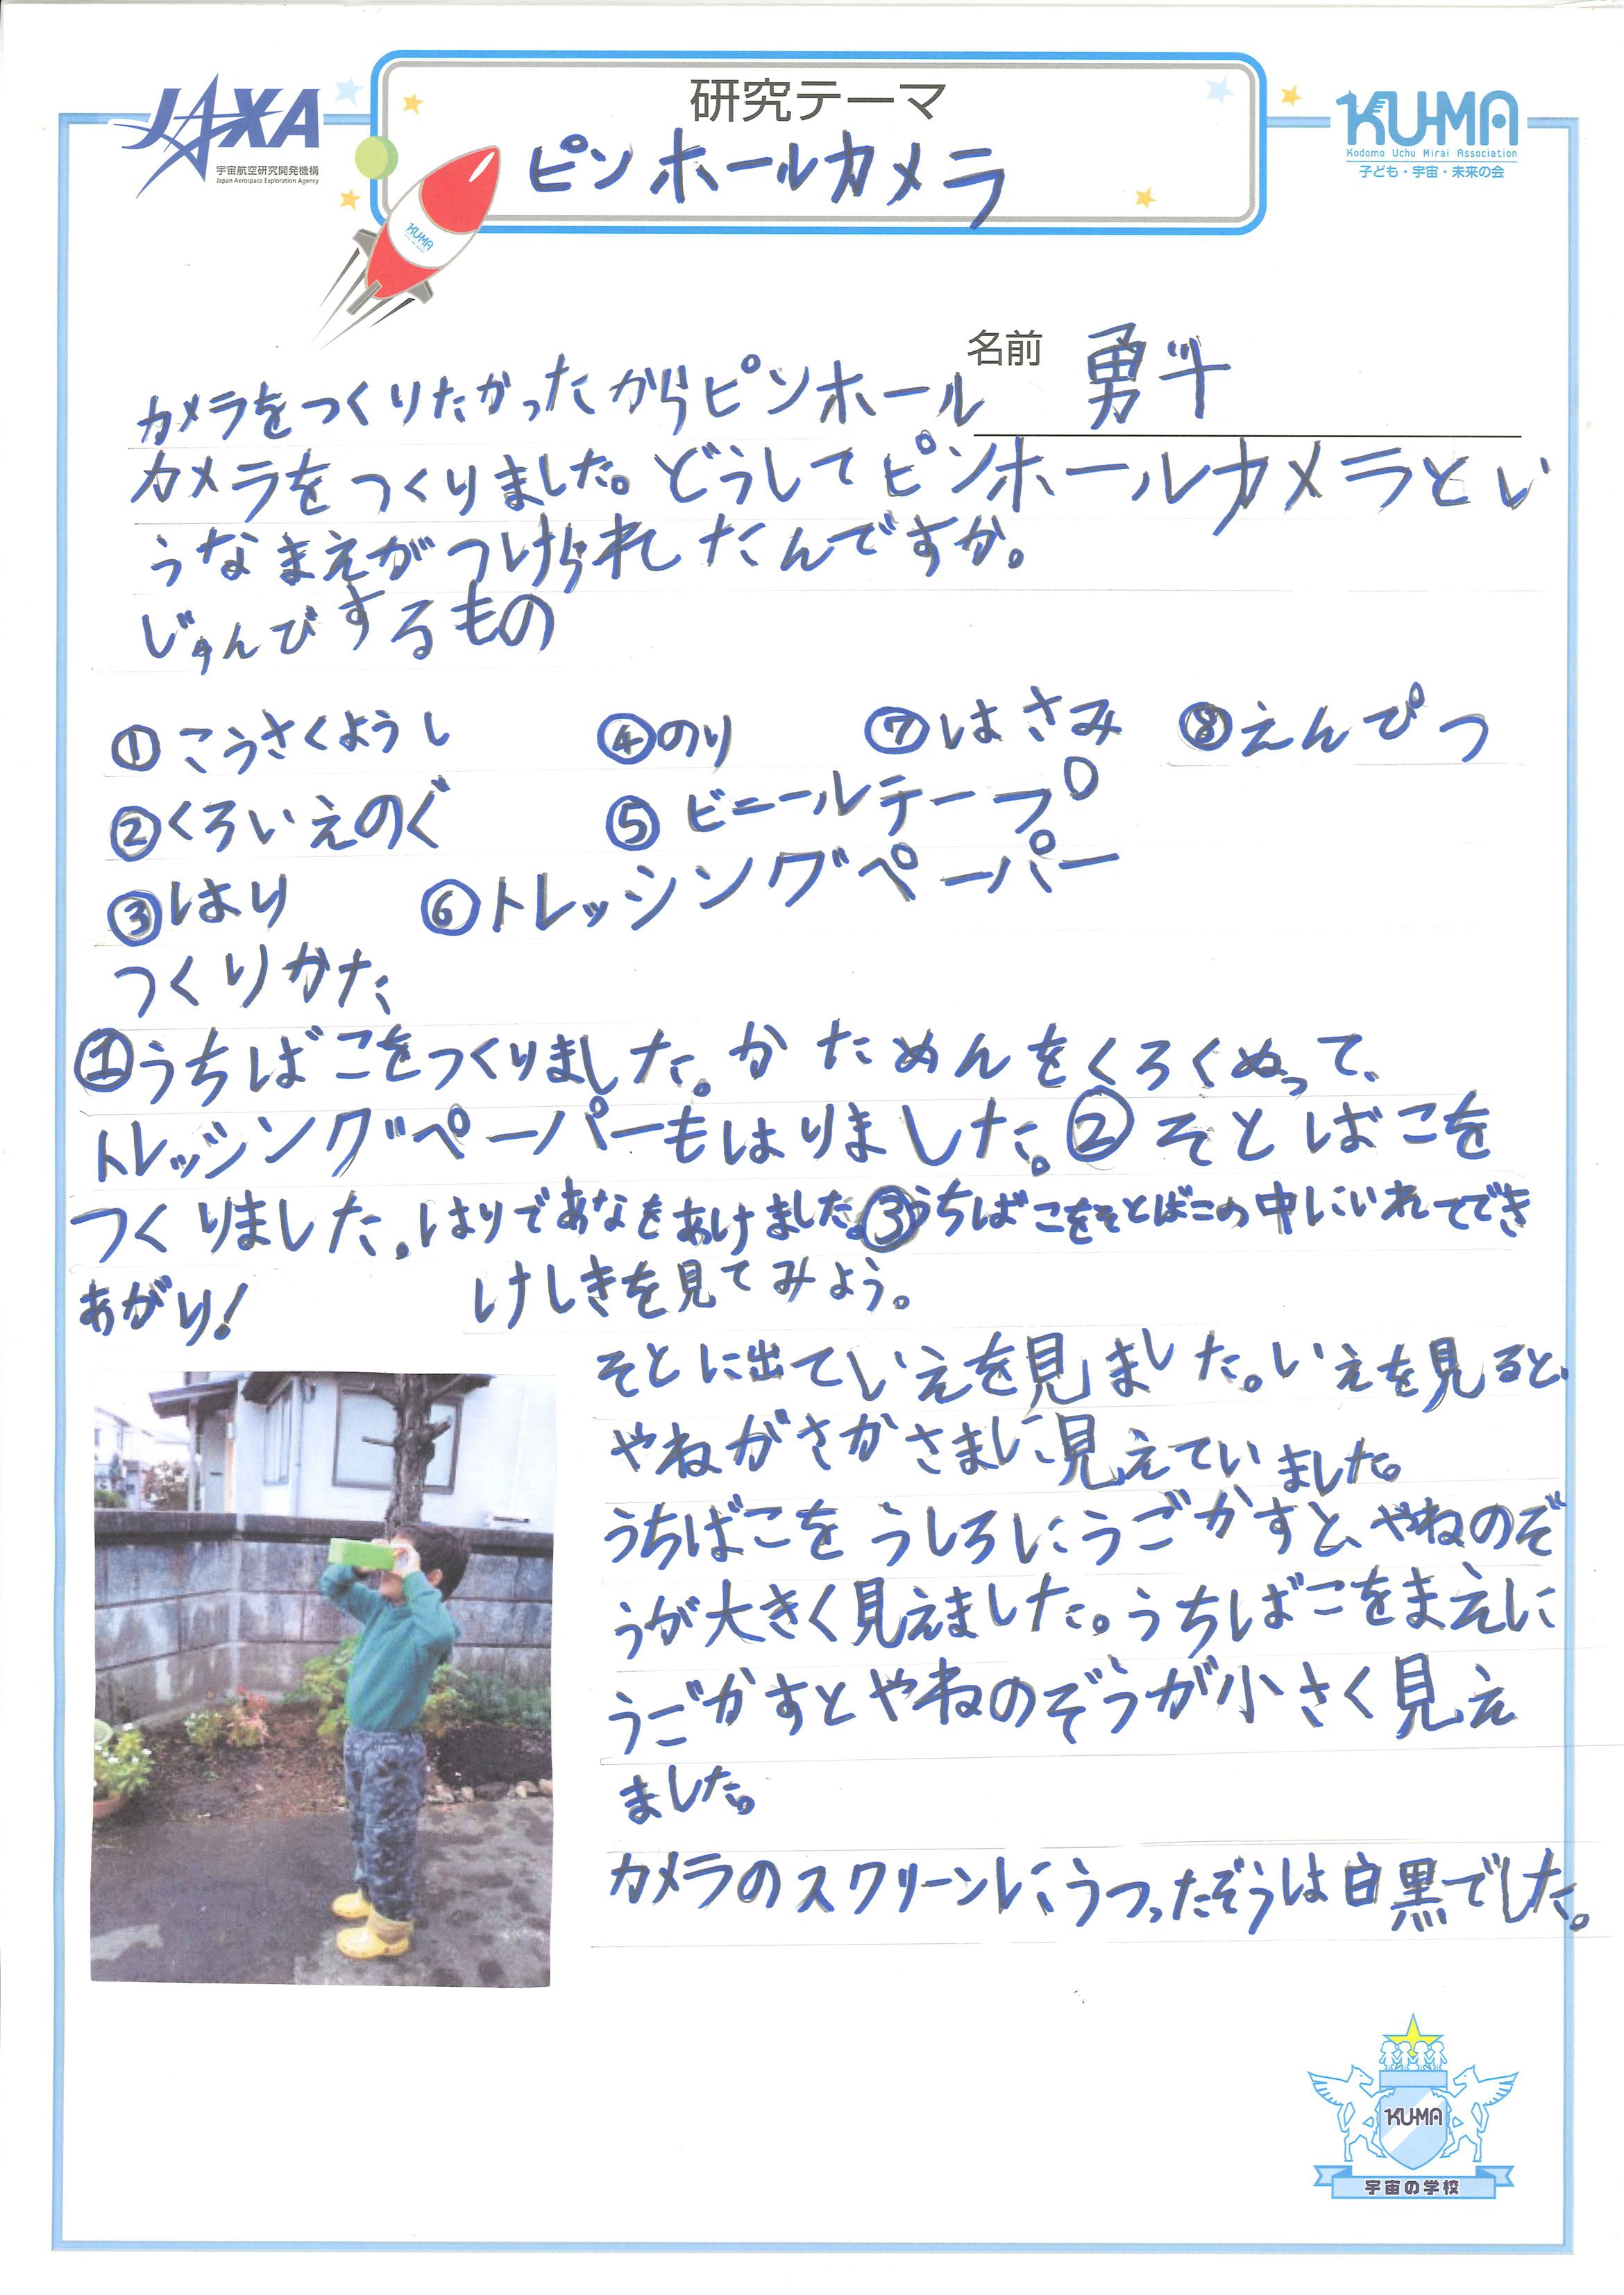 JAXA
宇宙航空研究開発機構
Japan Aerospace Exploration Agency
研究テーマ
ピンホールカメラ
KUMA
Kodomo Uchu Mirai Association
子ども・宇宙・未来の会
KUMA
名前 勇斗
カメラをつくりたかったからピンホール
カメラをつくりました。どうしてピンホールカメラとい
うなまえがつけられたんですか。
じゅんびするもの
①こうさくようし ④のり ⑦はさみ ⑧えんぴつ
②くろいえのぐ ⑤ビニールテープ
③はり ⑥トレッシングペーパー
つくりかた
①うちばこをつくりました。かためんをくろくぬって、
トレッシングペーパーもはりました。②そとばこを
つくりました。はりであなをあけました。③うちばこをそとばこの中にいれてでき
あがり!
けしきを見てみよう。
そとに出ていえを見ました。いえを見ると、
やねがさかさまに見えていました。
うちばこをうしろにうごかすと、やねのぞ
うが大きく見えました。うちばこをまえに
うごかすとやねのぞうが小さく見え
ました。
カメラのスクリーンにうつったぞうは白黒でした。
KUMA
宇宙の学校